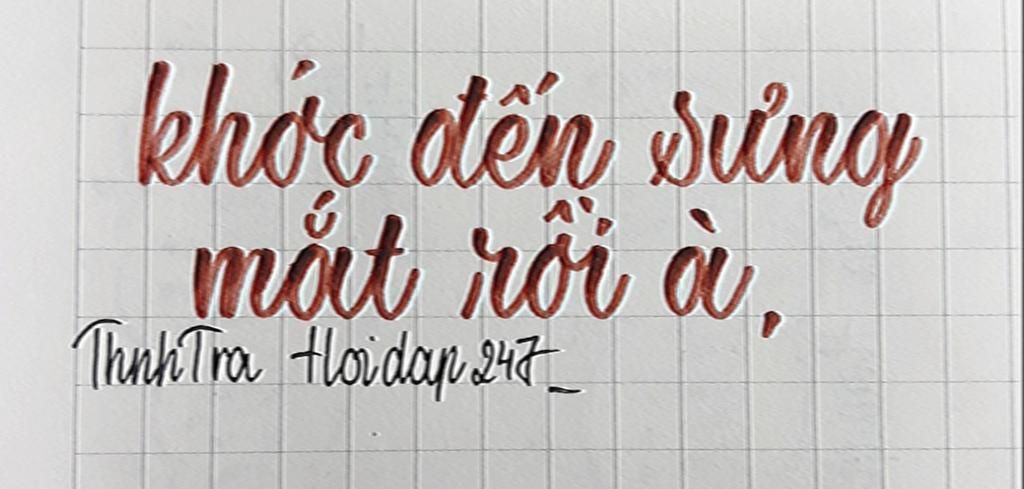 khóc đến sưng
mắt rồi à,
ThnhTra Hoidap247_